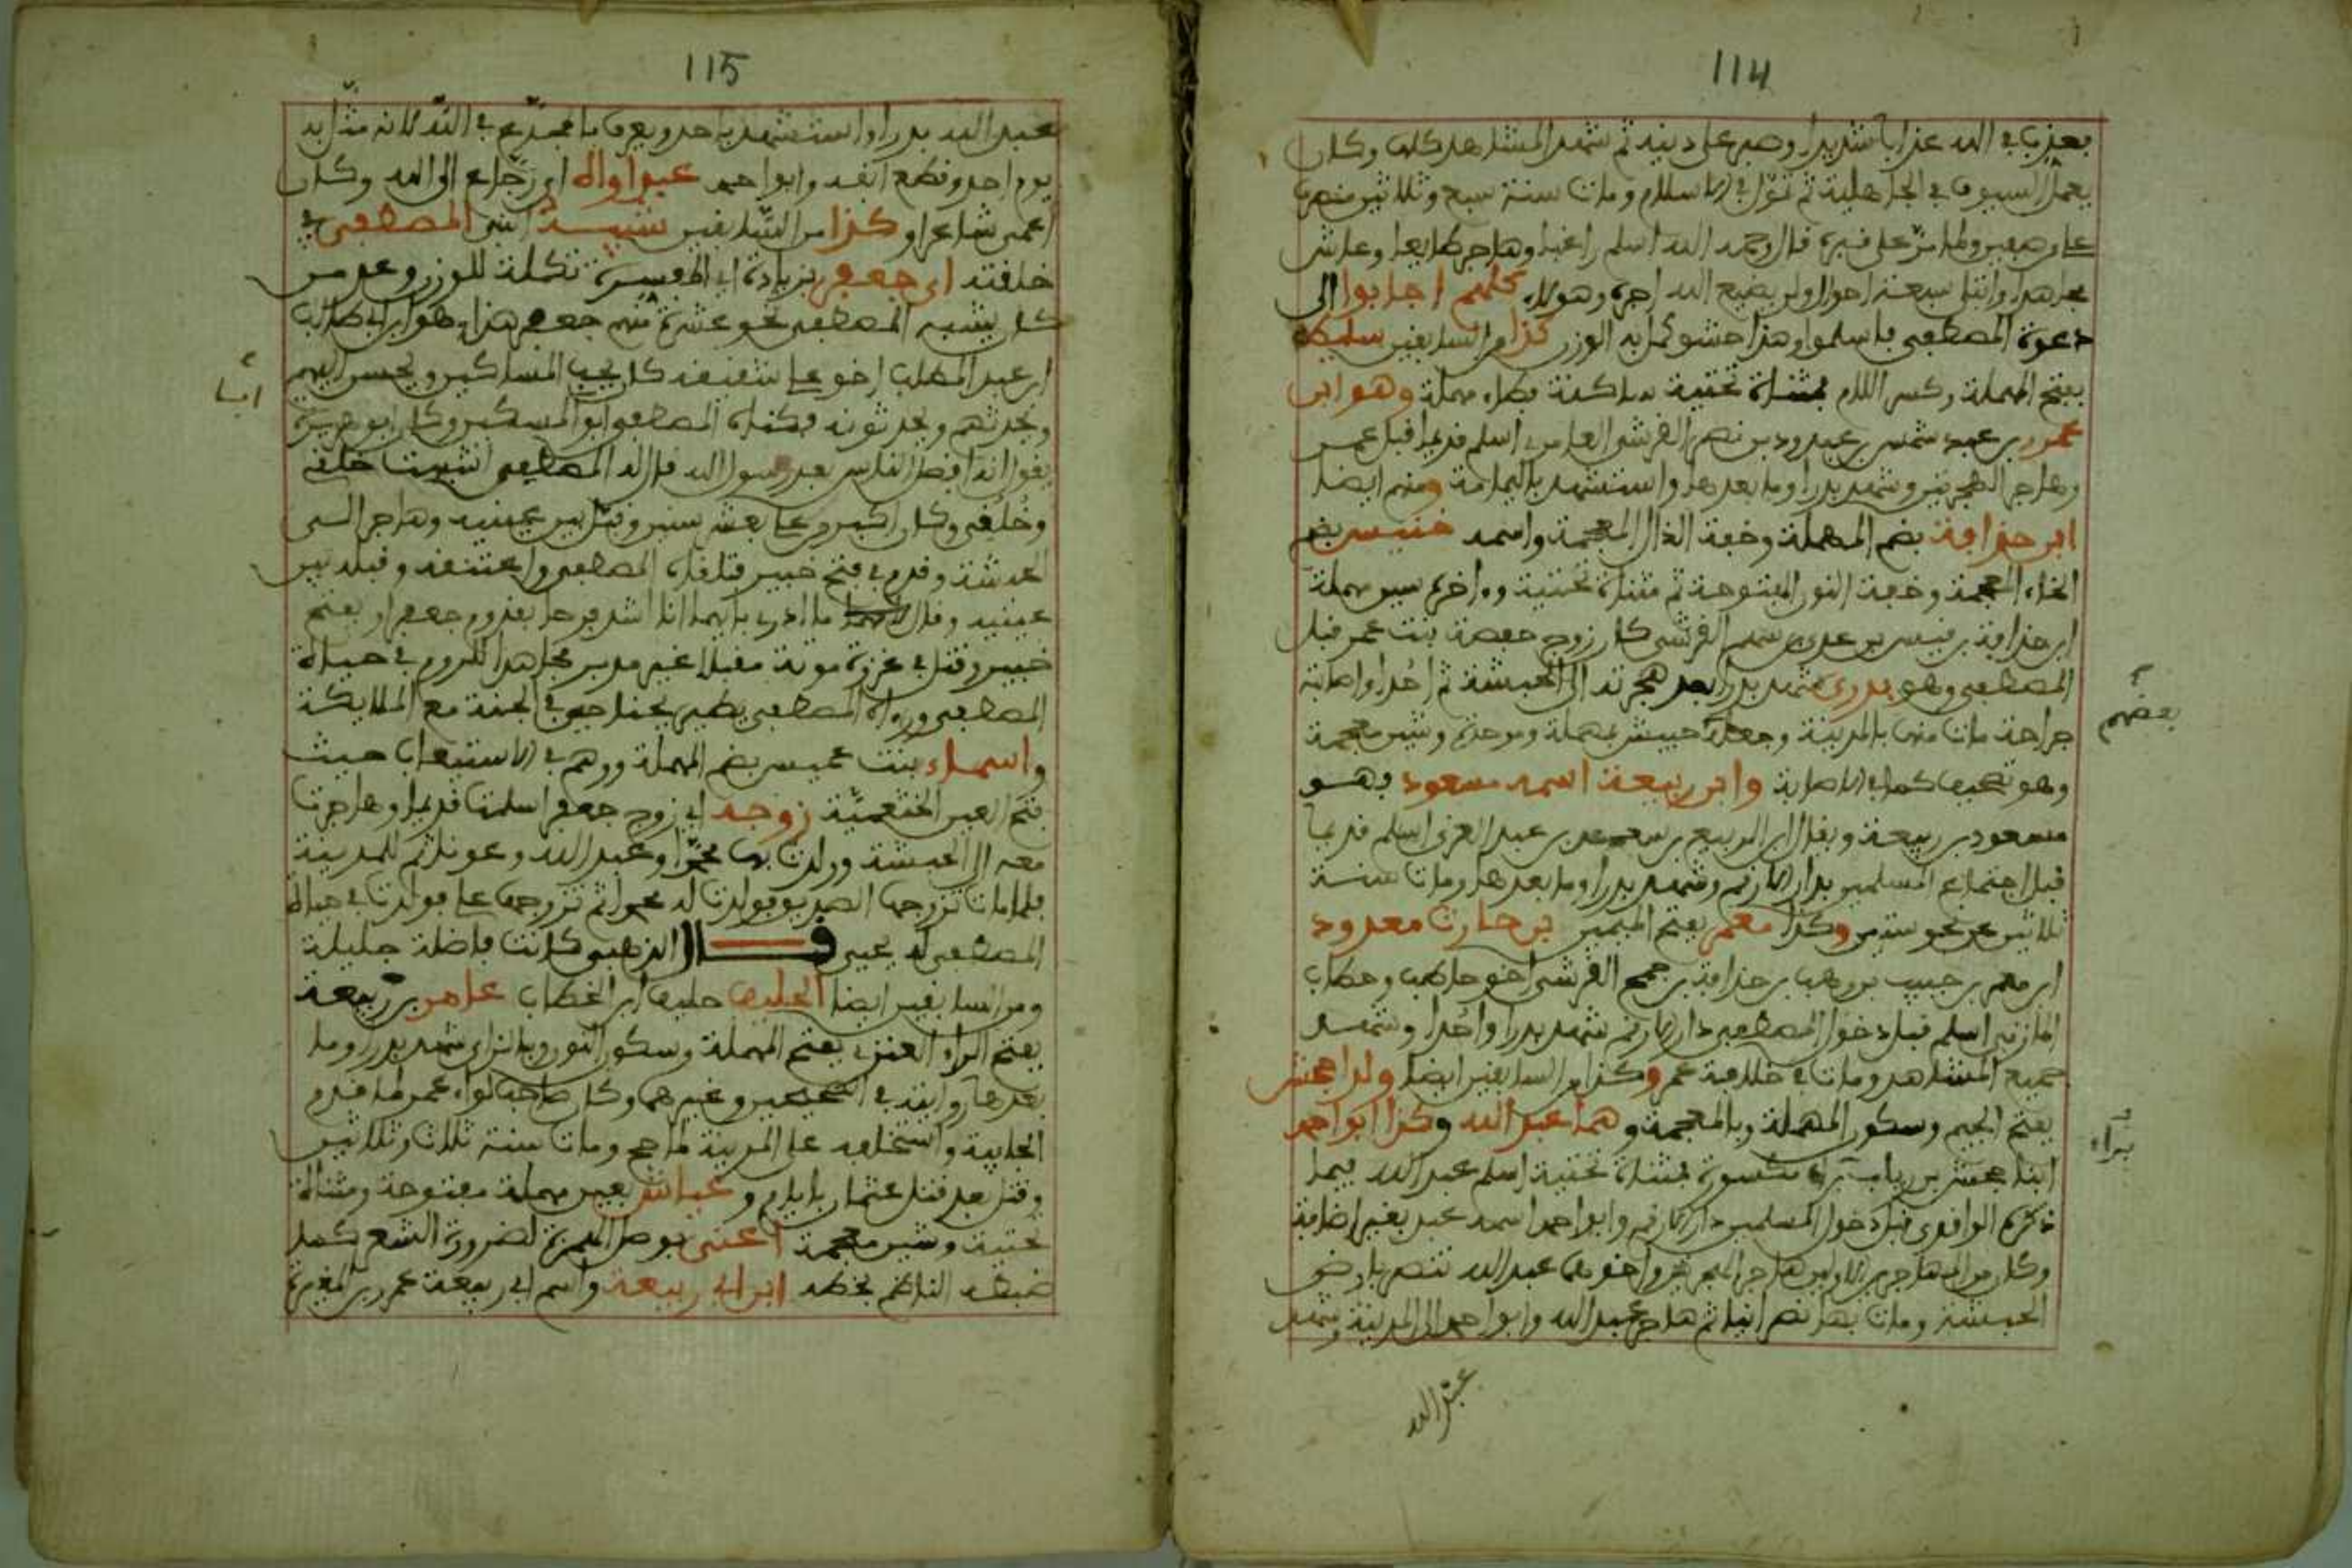 114
يعذب في الله عذابا شديدا وصبر على دينه ثم شهد المشاهد كلها وكان
يعمل السيوف في الجاهلية ثم في الاسلام ومات سنة سبع وثلاثين منصرف
علي من صفين ولما مر على قبره قال رحمه الله اسلم راغبا وهاجر طايعا وعاش
مجاهدا وابتلي في احوالا ولن يضيع الله اجره وهولاء كلهم اجابوا الى
دعوة المصطفى فاسلموا وهذا حشو كمل به الوزن كذا من السابقين سليط
بفتح المهملة وكسر اللام فمثناة تحتية ساكنة فطاء مهملة وهو ابن
عمرو بن عبد شمس بن عبد ود بن نصر القرشي العامري اسلم قديما قبل عمر
وهاجر الهجرتين وشهد بدرا وما بعدها واستشهد باليمامة ومنهم ايضا
ابن حذافة بضم المهملة وخفة الذال المعجمة واسمه خنيس بضم
الخاء المعجمة وخفة النون المفتوحة ثم مثناة تحتية واخره سين مهملة
ابن حذافة بن قيس بن عدي بن سهم القرشي كان زوج حفصة بنت عمر قبل
المصطفى وهو بدري شهد بدرا بعد هجرته الى الحبشة ثم احدا واصابته
جراحة مات منها بالمدينة وجعله حبيش بمهملة وموحدة وشين معجمة
بعضهم
وهو تصحيف كما في الاصابة وابن ربيعة اسمه مسعود فهو
مسعود بن ربيعة ويقال ابن الربيع بن سعد بن عبد العزى اسلم قديما
قبل اجتماع المسلمين بدار الارقم وشهد بدرا وما بعدها ومات سنة
ثلاثين عن نحو ستين وكذا معمر بفتح الميمين بن حارث معدود
ابن معمر بن حبيب بن وهب بن حذافة بن جمح القرشي اخو حاطب وحطاب
اسلم قبل دخول المصطفى دار الارقم شهد بدرا واحدا وشهد
جميع المشاهد ومات في خلافة عمر وكذا من السابقين ايضا ولدا جحش
بفتح الجيم وسكون المهملة وبالمعجمة وهما عبد الله وكذا ابو احمد
ابنا جحش بن رياب براء مكسورة فمثناة تحتية اسلم عبد الله فيما
براء
ذكره الواقدي قبل دخول المسلمين دار الارقم وابو احمد اسمه عبد بغير اضافة
وكان من المهاجرين الاولين هاجر الهجرتين واخوهما عبيد الله تنصر بارض
الحبشة ومات بها نصرانيا ثم هاجر عبد الله وابو احمد الى المدينة وشهد
عبد الله
115
عبد الله بدرا واستشهد باحد ويعرف بالمجدع في الله لانه مثل به
يوم احد وقطع انفه وابو احمد عبد اواه اي رجاع الى الله وكان
اعمى شاعرا وكذا من السابقين شبيه النبي المصطفى في
خلقته اي جعفر بزيادة اي المفسرة تكملة للوزن وعد من
كان يشبه المصطفى نحو عشرة منهم جعفر هذا وهو ابن ابي طالب
ابن عبد المطلب اخو علي شقيقه كان يحب المساكين ويحسن اليهم
ويحدثهم ويحدثونه فكناه المصطفى ابو المسكين وكان ابو هريرة
يقول انه افضل الناس بعد رسول الله قال له المصطفى اشبهت خلقي
وخلقي وكان اكبر من علي بعشر سنين وقبل بين عينيه وهاجر الى
الحبشة وقدم في فتح خيبر فتلقاه المصطفى واعتنقه وقبله بين
عينيه وقال ما ادري بايهما انا اشد فرحا بقدوم جعفر او بفتح
خيبر وقتل في غزوة موتة مقبلا غير مدبر مجاهدا للروم في حياة
المصطفى ورءاه المصطفى يطير بجناحين في الجنة مع الملايكة
واسماء بنت عميس بضم المهملة ووهم في الاستيعاب حيث
فتح العين الخثعمية زوجه اي زوج جعفر اسلمت قديما وهاجرت
معه الى الحبشة وولدت بها محمدا وعبد الله وعونا ثم للمدينة
فلما مات تزوجها الصديق فولدت له محمدا ثم تزوجها علي فولدت
له يحيى قال الذهبي كانت فاضلة جليلة
ومن السابقين ايضا الحليف حليف ابن الخطاب عامر بن ربيعة
بفتح الراء العنزي بفتح المهملة وسكون النون وبالزاي شهد بدرا وما
بعدها روايته في الصحيحين وغيرهما وكان صاحب لواء عمر لما قدم
الجابية واستخلفه على المدينة لما حج ومات سنة ثلاث وثلاثين
وقيل بعد قتل عثمان بايام وعياش بعين مهملة مفتوحة ومثناة
تحتية وشين معجمة اعني بوصل الهمزة لضرورة الشعر كما
ضبطه الناظم بخطه ابن ابي ربيعة واسم ابي ربيعة عمرو بن المغيرة